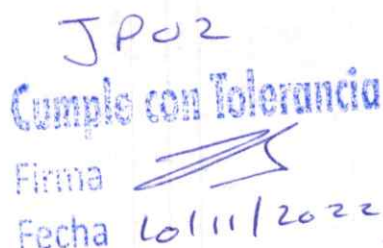 JP02
Cumple con Tolerancia
Firma
Fecha 10/11/2022